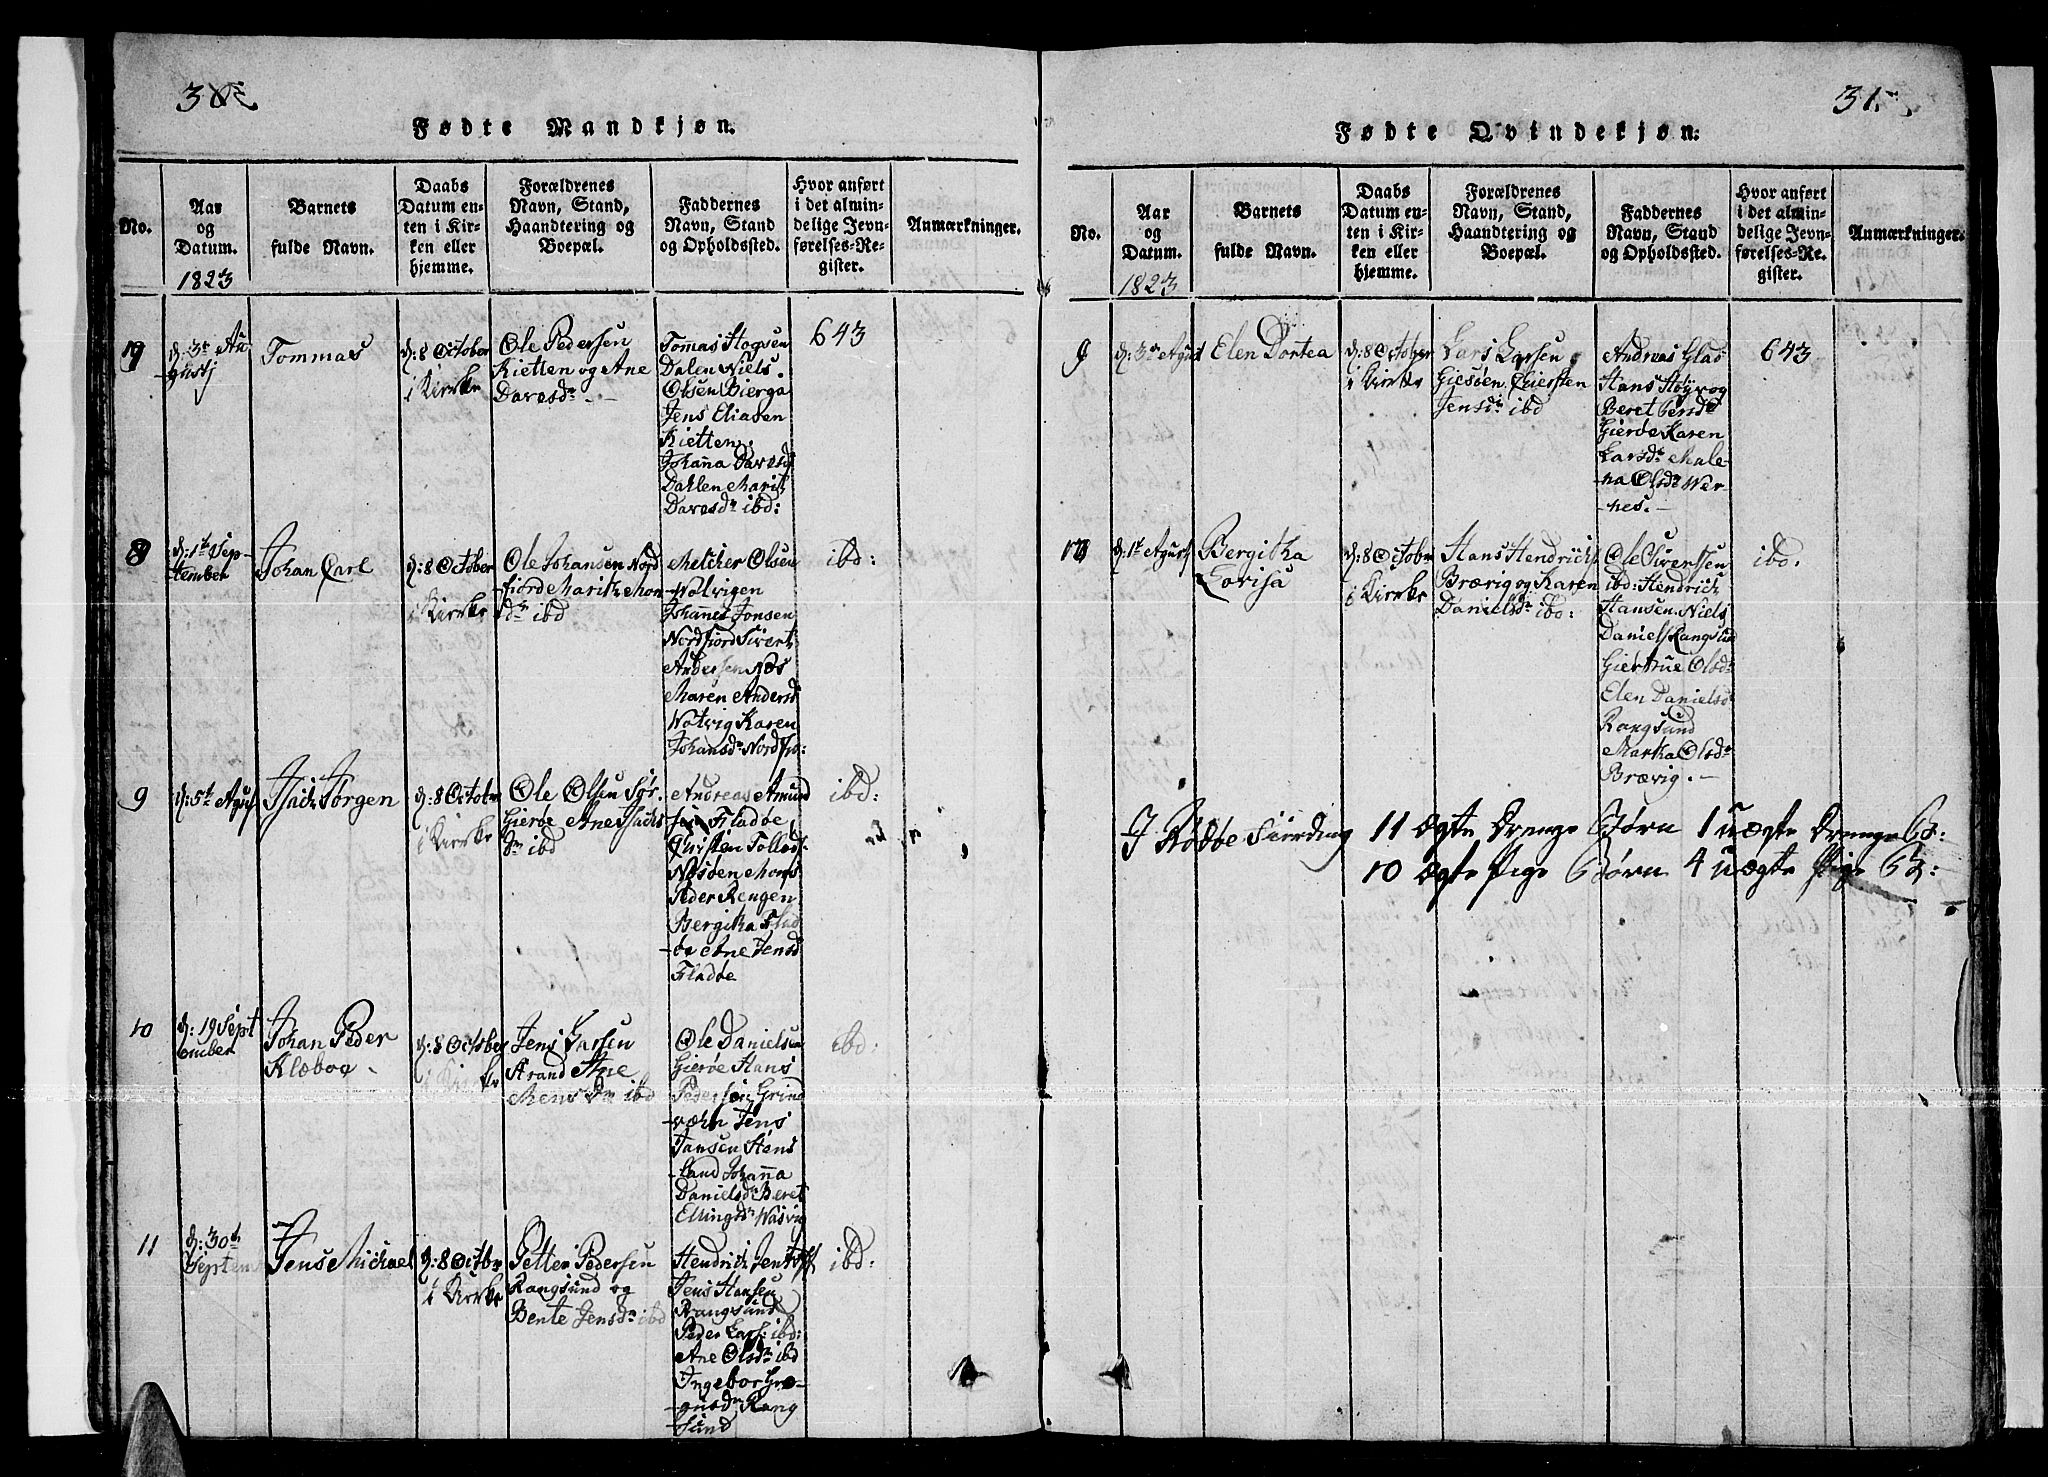 30
Fødte Mandkjøn.
No.
Aar
og
Datum.
1823
Barnets
fulde Navn.
Daabs
Datum en-
ten i Kir-
ken eller
hjemme.
Forældrenes
Navn, Stand,
Haandtering og
Boepæl.
Faddernes
Navn, Stand
og Opholdssted.
Hvor anført
i det almin-
delige Jevn-
førelses-Re-
gister.
Anmærkninger.
7
d: 3r Au
gustj
Tommas
d: 8 October
i Kirrke
Ole Pedersen
Kietten og Ane
Davesdr
Tomas Hogsen
Dalen Niels
Olsen Bierga
Jens Eliasen
Kietten
Johanna Davesd
Dahlen Marit
Davesdr ibd:
643
8
d: 1te Sep-
tember
Johan Carl
d: 8 October
i Kirrke
Ole Johansen Nord
fiord Marith Mon
dr ibd
Melcher Olsen
Wolvigen
Johannes Jonsen
Nordfiord Sivert
Andersen Næs
Maren Andersd
Wolvig Karen
Johansdr Nordfio:
ibd:
9
d: 5te Agust
Isach Jørgen
d: 8 Octobr
i Kirrke
Ole Olsen Sør.
Gierøe Ane Isachs
dr ibd
Andreas Amund
sen Fladøe
Christen Tollod
Næsøen Mons
Peder Rengen
Bergitha Flad
-øe Ane Jensd
Fladøe
ibd:
10
d: 19 Sept
ember
Johan Peder
Klæboe
d: 8 Octobr
i Kirrke
Jens Larsen
Strand Ane
Mensdr ibd
Ole Danielsen
Gierøe Hans
Pedersen Grind
-værn Jens
Jansen Stens
-land Johanna
Danielsdr Beret
Ellingsdr Wasvig
ibd:
11
d: 30te
Septem
Jens Michael
d: 8 Octobr
i Kirrke
Petter Pedersen
Rangsund og
Bente Jensdr ibd
Hendrich Jentoff
Jens Hansen
Rangsund
Peder Lars: ibd:
Ane Olsdr ibd
Ingebor Græ-
-gusdr Rang
-sund
ibd:
31.
Fødte Qvindekjøn:
No.
Aar
og
Datum.
1823
Barnets
fulde Navn.
Daabs
Datum en-
ten i Kir-
ken eller
hjemme.
Forældrenes
Navn, Stand,
Haandtering og
Boepæl.
Faddernes
Navn, Stand
og Opholdssted.
Hvor anført
i det almin-
delige Jevn-
førelses-Re-
gister.
Anmærkninger.
9
d: 3de Agust
Elen Dortea
d: 8 October
i Kirrke
Lars Larsen
Giesøen Chiersten
Jensdr ibd
Andreas Glas
Hans Høyer og
Beret Persdr
Gierøe Karen
Larsdr Male-
na Olsdr Wer-
-nes.-
643
10
d: 1te Agust
Bergitha
Lovisa
d: 8 Octobr
i Kirrke
Hans Hendrichs
Brævig og Karen
Danielsdr ibd:
Ole Sivertsen
ibd: Hendrich
Hansen Niels
Daniels Rangsund
Giertrue Olsdr
Elen Daniels
Rangsund
Martha Olsdr
Brævig.-
ibd.
I Rødøe Fierding 11 ægte Drenge Børn 1 uægte Drenge B:
10 ægte Pige Børn 4 uægte Pige B: